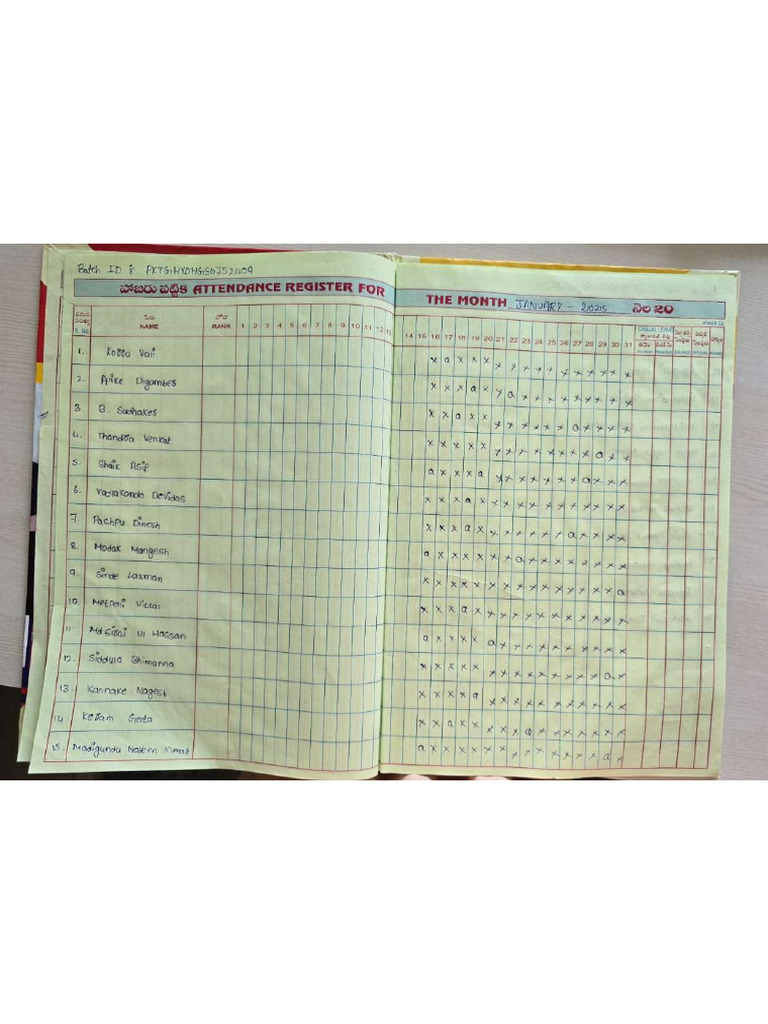 Batch ID :
హాజరు పట్టిక ATTENDANCE REGISTER FOR THE MONTH JANUARY - 2025 నెల 20
వరుస సంఖ్య S. No. పేరు NAME హోదా RANK 1 2 3 4 5 6 7 8 9 10 11 12 13 14 15 16 17 18 19 20 21 22 23 24 25 26 27 28 29 30 31
1. Kova Vari x a x x x x x x x x x x x x x x
2. Arike Digamber x x x a x x a x x x x x x x x x
3. B. Sudhaker x x a x x x x x x x x a x x x x
4. Thandra Venkat x x x x x x x x x x x x x a x x
5. Shaik Asif a x x x a x x x x x x x a x x x
6. Devidas x x x a x x x x x x x x x x x x
7. Pachpu Dinesh x x x a x x x x x x x a x x x x
8. Modak Mangesh a x x x x x x a x x x x x x x x
9. Sinde Laxman x x x x x x x x x x x x x x x a
10. Vittal x x x a x x x x x x x x x x x x
11. Md Ul Hassan a x x x x a x x x x x x x x x x
12. Siddula Bhimanna x x x x x x x x x x x x x x a x
13. Kannake Nagesh x x x x a x x x x x x x x x x x
14 Keram Geeta x x a x x x x x a x x x x x x x
15. Madigundu Naveen Kumar a x x x x x x x x x x x x x a x